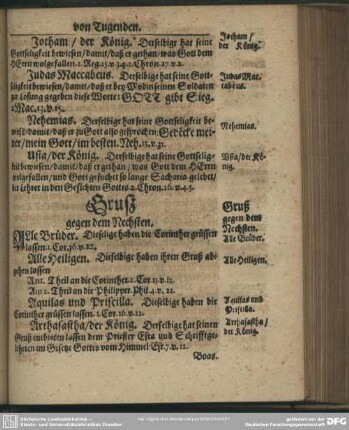 von Tugenden.
Jotham / der König. Derselbige hat seine
Gottseligkeit bewiesen / damit / daß er gethan / was Gott dem
HErrn wolgefallen. 1. Reg. 15. v. 34. 2. Chron. 27. v. 2.
Jotham /
der König.
Judas Maccabeus. Derselbige hat seine Gott-
seligkeit bewiesen / damit / daß er bey Modin seinen Soldaten
zu Losung gegeben diese Wort: GOTT gibt Sieg.
2. Mac. 13. v. 15.
Judas Mac-
cabeus.
Nehemias. Derselbige hat seine Gottseligkeit be-
wiesen / damit / daß er zu Gott also gesprochen: Gedäcke mei-
ner / mein Gott / im besten. Neh. 13. v. 31.
Nehemias.
Usia / der König. Derselbige hat seine Gottselig-
keit bewiesen / damit / daß er gethan / was Gott dem HErrn
wolgefallen / und Gott gesuchet so lange Sacharia gelebet /
der Lehrer in den Gesichten Gottes. 2. Chron. 26. v. 4. 5.
Usia / der Kö-
nig.
Gruß
gegen dem Nechsten.
Alle Brüder. Dieselige haben die Corinther grüssen
lassen. 1. Cor. 16. v. 22.
Gruß
gegen dem
Nechsten.
Alle Brüder.
Alle Heiligen. Dieselbige haben ihren Gruß ab-
gehen lassen
An 1. Theil an die Corinther. 2. Cor. 13. v. 12.
Am 2. Theil an die Philipper. Phil. 4. v. 22.
Alle Heiligen.
Aquilas und Priscilla. Dieselbige haben die
Corinther grüssen lassen. 1. Cor. 16. v. 12.
Aquilas und
Priscilla.
Arthasastha / der König. Derselbige hat seinen
Gruß entbieten lassen dem Priester Esra und Schrifftge-
lehrten im Gesetze Gottes vom Himmel. Esr. 7. v. 12.
Arthasastha /
der König.
Boas.
Sächsische Landesbibliothek –
Staats- und Universitätsbibliothek Dresden
gefördert von der
DFG